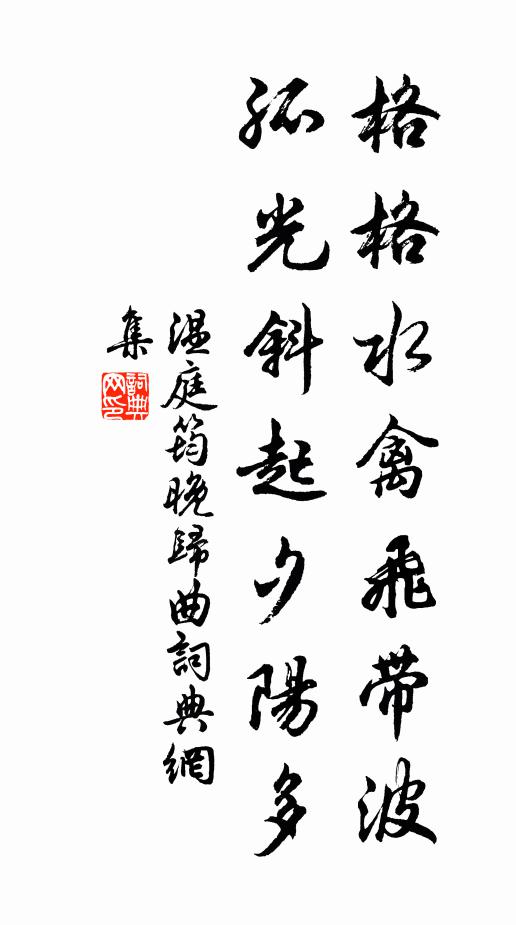 格格水禽飛带波
孤光斜起夕陽多
温庭筠晚歸曲詞典網
集
詞典網印